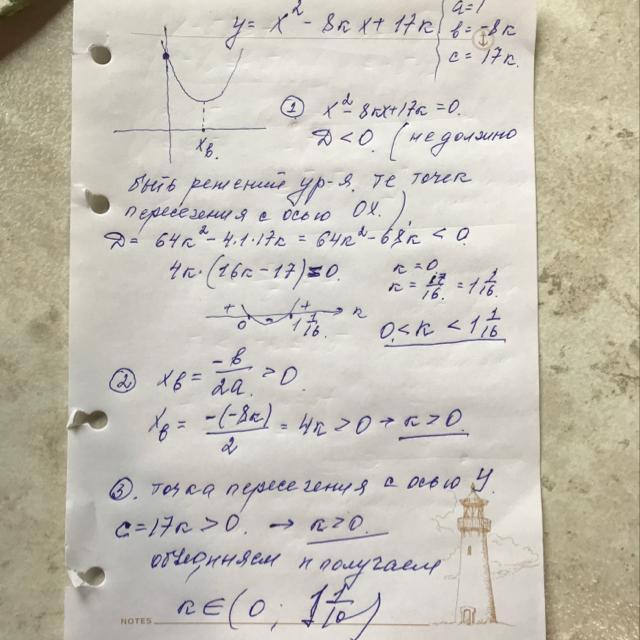 y = x² - 8кx + 17к
a = 1
в = -8к
c = 17к.
① x² - 8кx + 17к = 0.
D < 0. (не должно
xв.
быть решений ур-я, те точек
пересечения с осью OX.)
D = 64к² - 4·1·17к = 64к² - 68к < 0.
4к·(16к - 17) = 0.
к = 0
к = 17/16 = 1 1/16
+ - + к
0 1 1/16
0 < к < 1 1/16
② xв = -в/2a > 0.
xв = -(-8к)/2 = 4к > 0 → к > 0.
③. точка пересечения с осью У.
c = 17к > 0. → к > 0.
объединяем и получаем
NOTES
к ∈ (0 ; 1 1/16)